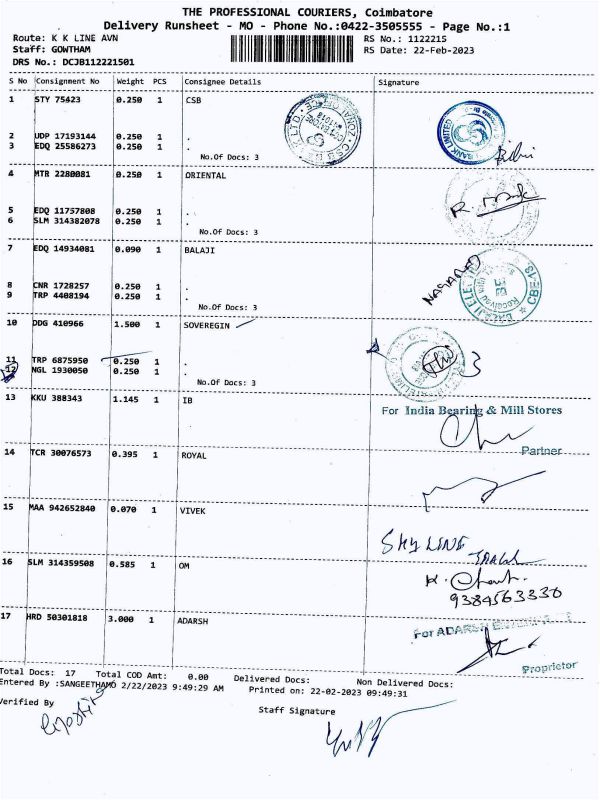 THE PROFESSIONAL COURIERS, Coimbatore
Delivery Runsheet - MO - Phone No.:0422-3505555 - Page No.:1
Route: K K LINE AVN RS No.: 1122215
Staff: GOWTHAM RS Date: 22-Feb-2023
DRS No.: DCJB112221501
S No Consignment No Weight PCS Consignee Details Signature
1 STY 75423 0.250 1 CSB
2 UDP 17193144 0.250 1 .
3 EDQ 25586273 0.250 1 .
No.Of Docs: 3
4 MTR 2280081 0.250 1 ORIENTAL
5 EDQ 11757808 0.250 1 .
6 SLM 314382078 0.250 1 .
No.Of Docs: 3
7 EDQ 14934081 0.090 1 BALAJI
NAGARAJ
8 CNR 1728257 0.250 1 .
9 TRP 4408194 0.250 1 .
No.Of Docs: 3
10 DDG 410966 1.500 1 SOVEREGIN
11 TRP 6875950 0.250 1 .
12 NGL 1930050 0.250 1 .
3
No.Of Docs: 3
13 KKU 388343 1.145 1 IB
For India Bearing & Mill Stores
Partner
14 TCR 30076573 0.395 1 ROYAL
15 MAA 942652840 0.070 1 VIVEK
SKY LINE
16 SLM 314359508 0.585 1 OM
9384563330
17 HRD 50301818 3.000 1 ADARSH
For ADARSH
Proprietor
Total Docs: 17 Total COD Amt: 0.00 Delivered Docs: Non Delivered Docs:
Entered By :SANGEETHAMO 2/22/2023 9:49:29 AM Printed on: 22-02-2023 09:49:31
Verified By
Staff Signature